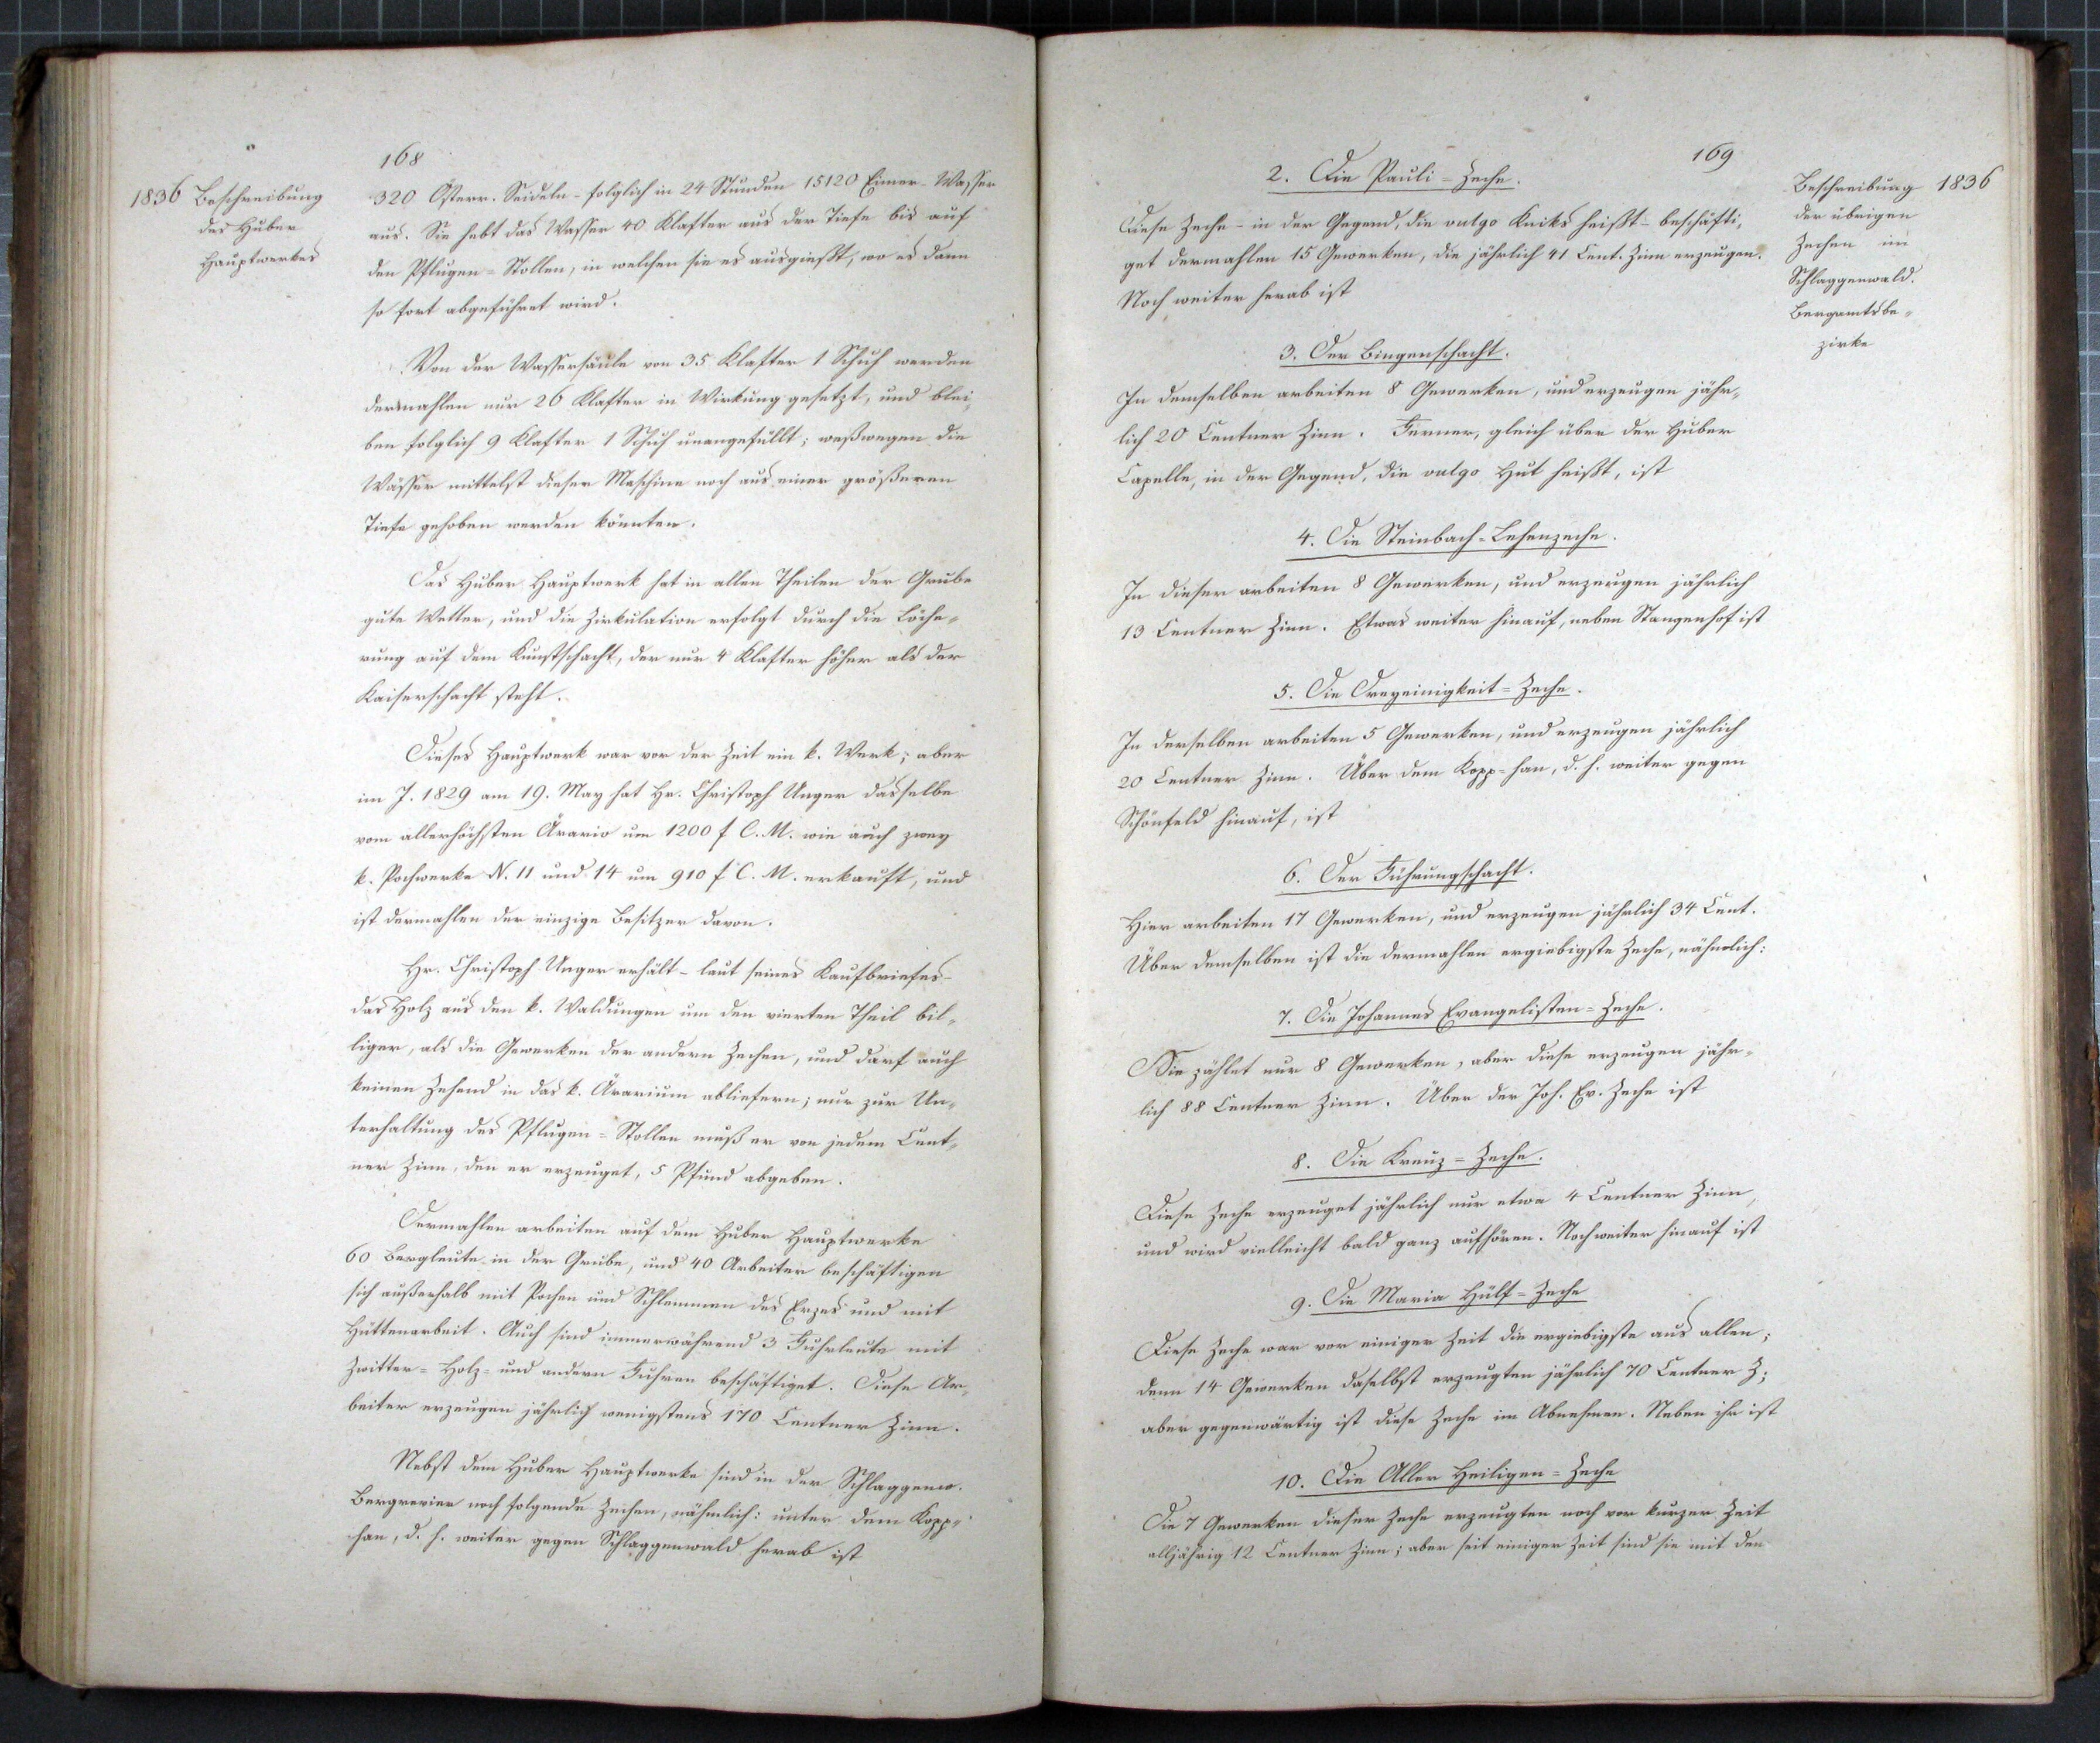 168
1836 Beschreibung
des Huber
Hauptwerkes
320 Österr. Seideln - folglich in 24 Stunden 15120 Eimer Wasser
aus. Sie hebt das Wasser 40 Klafter aus der Tiefe bis auf
den Pflugen-Stollen, in welchen sie es ausgießt, wo es dann
so fort abgeführet wird.
Von der Wassersäule von 35 Klafter 1 Schuh werden
dermahlen nur 26 Klafter in Wirkung gesetzt, und blei-
ben folglich 9 Klafter 1 Schuh unangefüllt; weßwegen die
Wässer mittelst dieser Maschine noch aus einer größeren
Tiefe gehoben werden könnten.
Das Huber Hauptwerk hat in allen Theilen der Grube
gute Wetter, und die Zirkulation erfolgt durch die Löche-
rung auf dem Kunstschacht, der nur 4 Klafter höher als der
Kaiserschacht steht.
Dieses Hauptwerk war vor der Zeit ein k. Werk; aber
im J. 1829 am 19. May hat Hr. Christoph Unger dasselbe
vom allerhöchsten Ärario um 1200 f C. M. wie auch zwey
k. Pochwerke N. 11 und 14 um 910 f C. M. erkauft, und
ist dermahlen der einzige Besitzer davon.
Hr. Christoph Unger erhält - laut seines Kaufbriefes -
das Holz aus den k. Waldungen um den vierten Theil bil-
liger, als die Gewerken der andern Zechen, und darf auch
keinen Zehend in das k. Ärarium abliefern; nur zur Un-
terhaltung des Pflugen-Stollen muß er von jedem Cent-
ner Zinn, den er erzeuget, 5 Pfund abgeben.
Dermahlen arbeiten auf dem Huber Hauptwerke
60 Bergleute in der Grube, und 40 Arbeiter beschäftigen
sich außerhalb mit Pochen und Schlemmen des Erzes und mit
Hüttenarbeit. Auch sind immerwährend 3 Fuhrleute mit
Zwitter- Holz- und andern Fuhren beschäftiget. Diese Ar-
beiter erzeugen jährlich wenigstens 170 Centner Zinn.
Nebst dem Huber Hauptwerke sind in der Schlaggenw.
Bergrevier noch folgende Zechen, nähmlich: unter dem Kopp-
han, d. h. weiter gegen Schlaggenwald herab ist
169
Beschreibung 1836
der übrigen
Zechen im
Schlaggenwald.
Bergamtsbe-
zirke
2. Die Pauli-Zeche.
Diese Zeche - in der Gegend, die vulgo Kniks heißt - beschäfti-
get dermahlen 15 Gewerken, die jährlich 41 Cent. Zinn erzeugen.
Noch weiter herab ist
3. Der Bingenschacht.
In demselben arbeiten 8 Gewerken, und erzeugen jähr-
lich 20 Centner Zinn. Ferner, gleich über der Huber
Capelle, in der Gegend, die vulgo Hut heißt, ist
4. Die Steinbach-Lehenzeche.
In dieser arbeiten 8 Gewerken, und erzeugen jährlich
13 Centner Zinn. Etwas weiter hinauf, neben Stangenhof ist
5. Die Dreyeinigkeit-Zeche.
In derselben arbeiten 5 Gewerken, und erzeugen jährlich
20 Centner Zinn. Über dem Kopp-han, d. h. weiter gegen
Schönfeld hinauf, ist
6. Der Führungschacht.
Hier arbeiten 17 Gewerken, und erzeugen jährlich 34 Cent.
Über demselben ist die dermahlen ergiebigste Zeche, nähmlich:
7. Die Johannes Evangelisten-Zeche.
Sie zählet nur 8 Gewerken, aber diese erzeugen jähr-
lich 88 Centner Zinn. Über der Joh. Ev. Zeche ist
8. Die Kreuz-Zeche.
Diese Zeche erzeuget jährlich nur etwa 4 Centner Zinn,
und wird vielleicht bald ganz aufhören. Noch weiter hinauf ist
9. Die Maria Hülf-Zeche
Diese Zeche war vor einiger Zeit die ergiebigste aus allen;
denn 14 Gewerken daselbst erzeugten jährlich 70 Centner Z;
aber gegenwärtig ist diese Zeche im Abnehmen. Neben ihr ist
10. Die Aller Heiligen-Zeche
Die 7 Gewerken dieser Zeche erzeugten noch vor kurzer Zeit
alljährig 12 Centner Zinn; aber seit einiger Zeit sind sie mit den